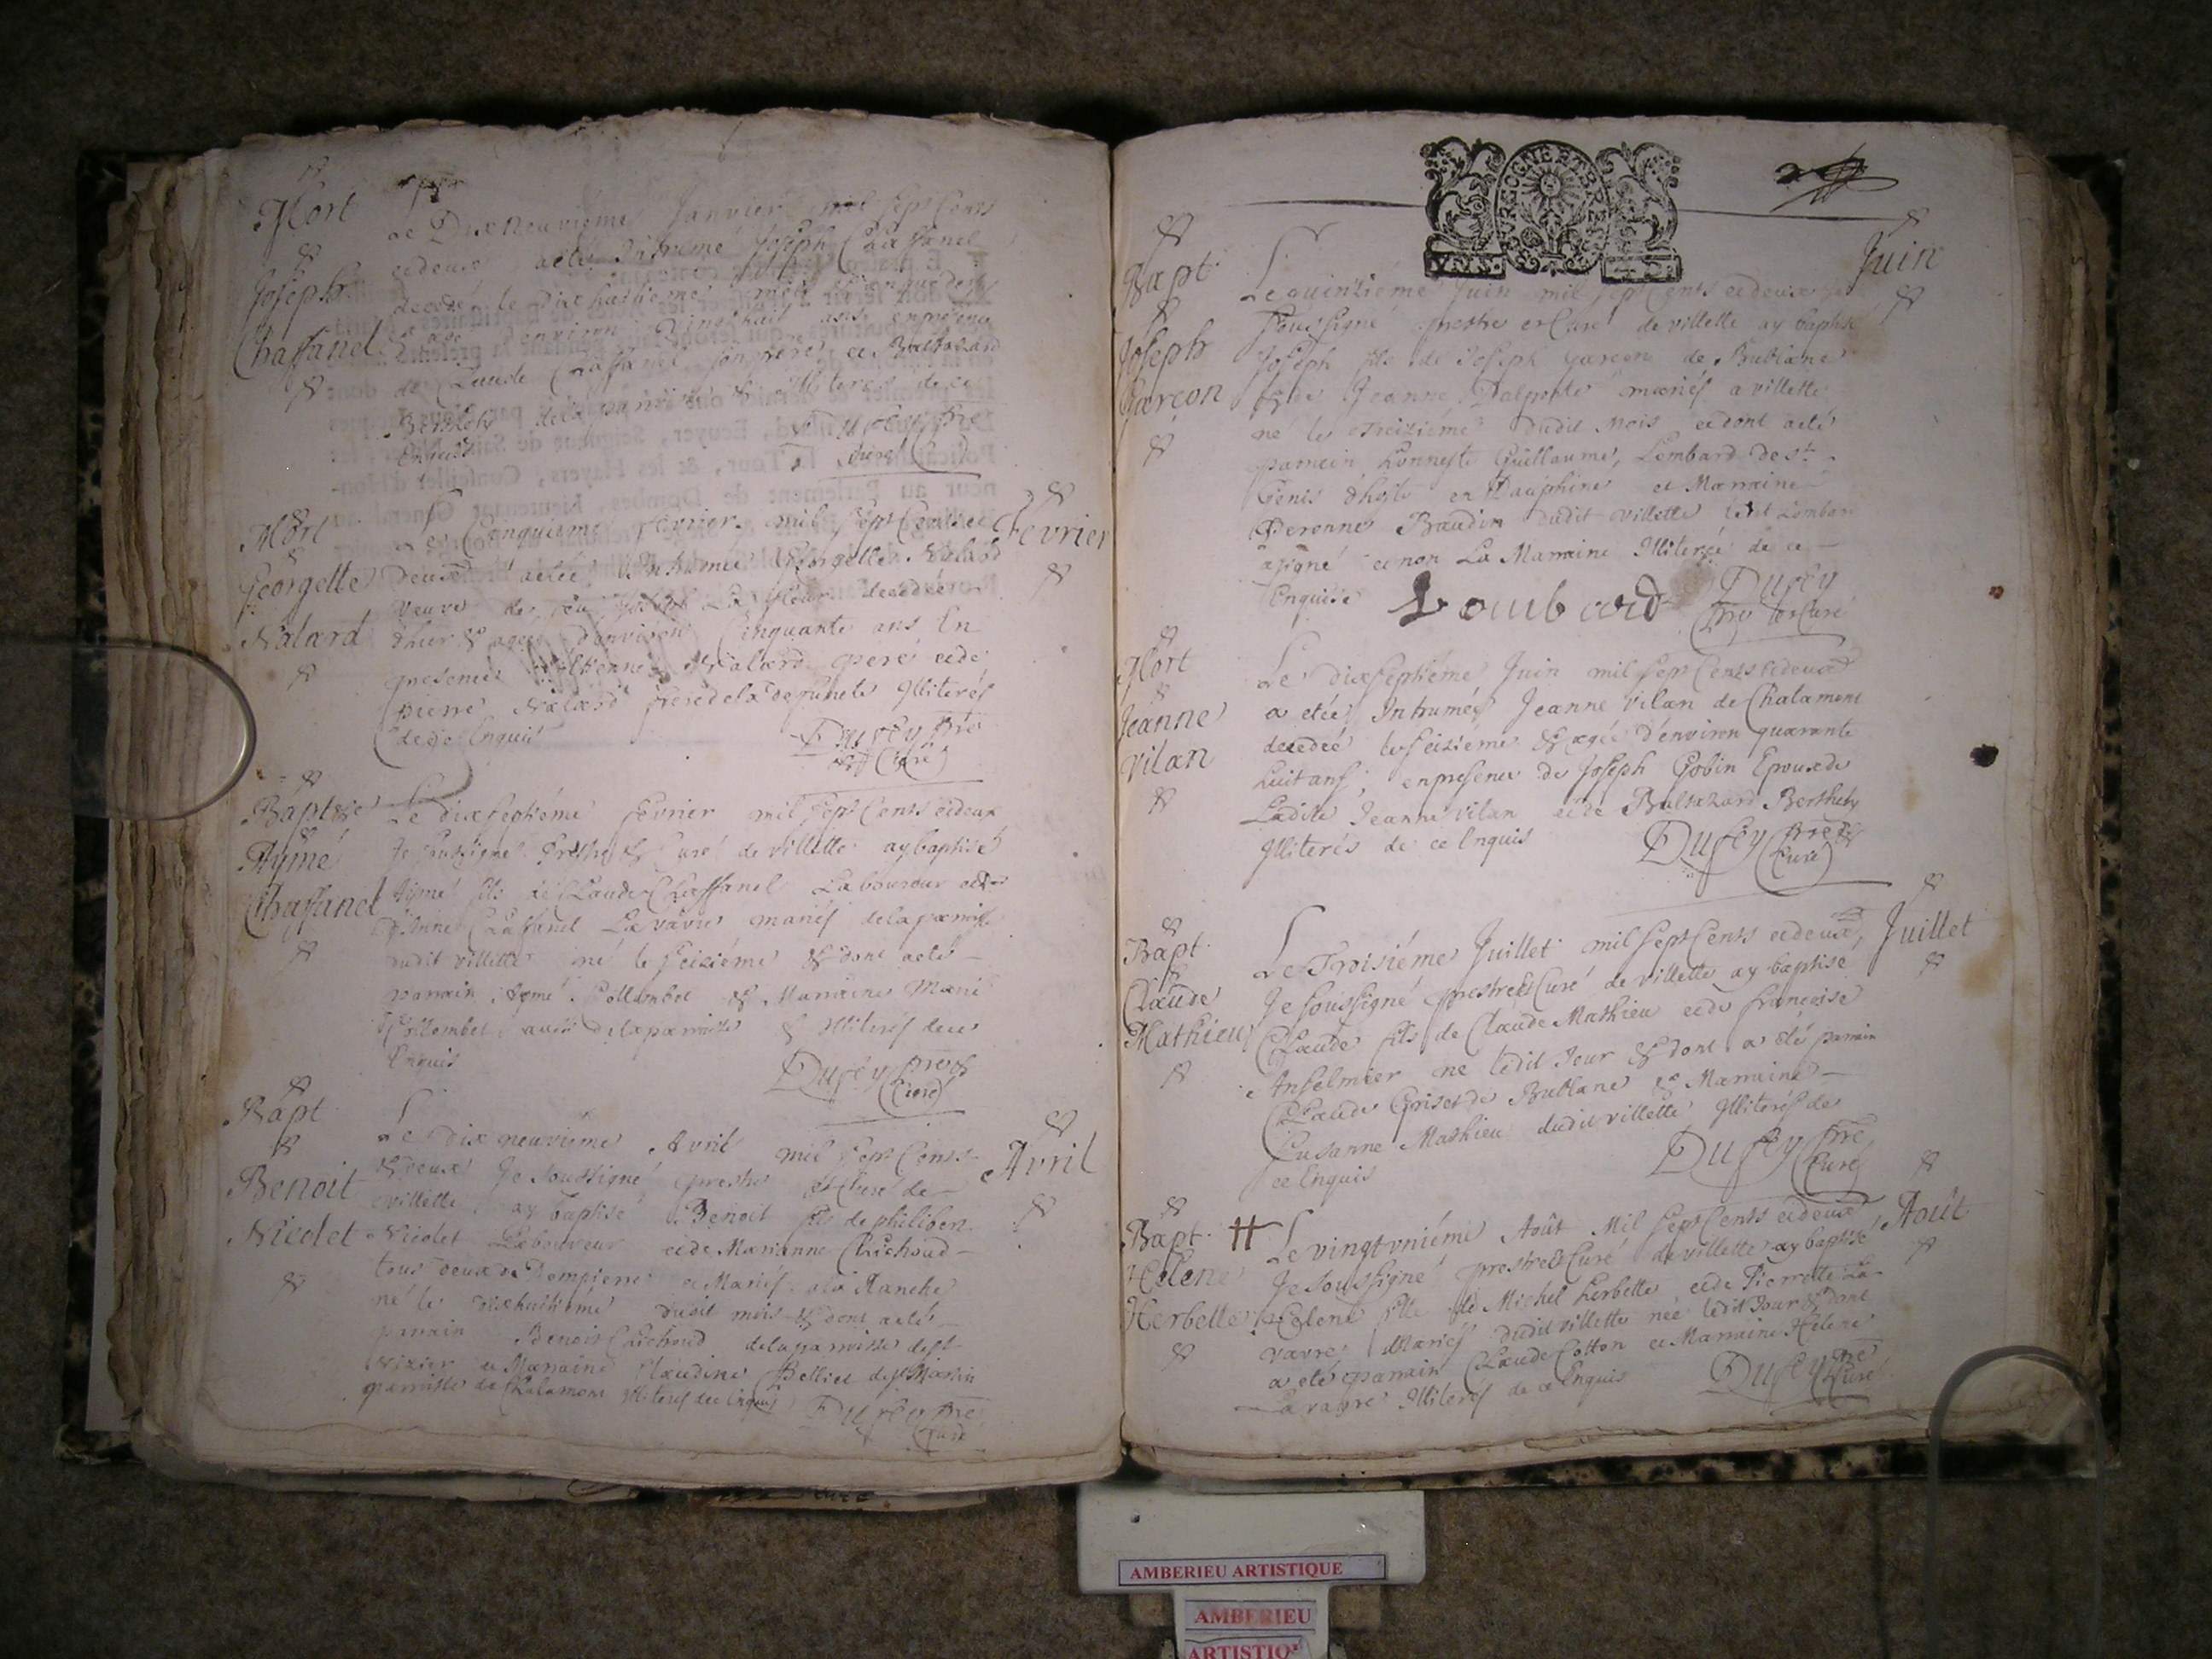 Mort
Joseph
Chaffanel
Le Dixneuviéme Janvier mil sept Cents
et deux a eté Intrumé Joseph Chaffanel
decedé le dixhuitieme
agé d'environ vingthuit ans en presence
de Claude Chaffanel son frere et Baltazard
Berthely de la parroisse Illiterés de ce
Enquis
Dufey pre
Curé
Fevrier
Mort
Georgette
Nalard
Le Cinquieme fevrier mil sept Cents et
deux a etée Intrumée Georgette Nalard
veuve de feu Joseph La fleur decedée
d'hier & agée d'environ Cinquante ans En
presence d'Etienne Nalard pere et de
pierre Nalard frere de la defuncte Illiterés
de ce Enquis
Dufey pre
& Curé
Baptse
Aymé
Chaffanel
Le dixseptiéme fevrier mil sept Cents et deux
Je soussigné Prestre & Curé de villette ay baptisé
Aymé fils de Claude Chaffanel Laboureur et
Chaffanel La vavre mariés de la parroisse
dudit villette né le seiziéme & dont a eté
parrain Aymé Collombet & Marraine Marie
Collombet aussi de la parroisse & Illiterés de ce
Enquis
Dufey pre &
Curé
Avril
Bapt
Benoit
Nicolet
Le dix neuviéme Avril mil sept Cents
& deux Je soussigné prestre & Curé de
villette ay baptisé Benoit fils de philibert
Nicolet Laboureur et de Marianne Chichoud
tous deux de Dompierre et Mariés a la Ranche
né le dixhuitiéme dudit mois & dont a eté
parrain Benoit Chichoud de la parroisse de st
Nizier et Marraine Claudine Bellier de st Martin
parroisse de Chalamont Illiterés de ce Enquis
Dufey pre
Curé
Juin
Bapt
Joseph
Garcon
Le quinziéme Juin mil sept Cents et deux Je
soussigné prestre et Curé de villette ay baptisé
Joseph fils de Joseph garcon de Bublane
& de Jeanne Dalponte mariés a villette
né le Treiziéme dudit Mois et dont a eté
parrain honneste Guillaume Lombard de st
Genis d'hoste en Dauphiné et Marraine
Peronne Baudin dudit villette ledit Lombard
a signé et non La Marraine Illiterée de ce
Enquise
Lombard
Dufey
pre et Curé
Mort
Jeanne
vilan
Le dixseptiéme Juin mil sept Cents et deux
a etée Intrumée Jeanne vilan de Chalamont
decedée le seiziéme & agée d'environ quarante
huit ans, en presence de Joseph Gobin Epoux de
Ladite Jeanne vilan et de Baltazard Berthely
Illiterés de ce Enquis
Dufey pre &
Curé
Juillet
Bapt
Claude
Mathieu
Le Troisiéme Juillet mil sept Cents et deux,
Je soussigné prestre & Curé de villette ay baptisé
Claude fils de Claude Mathieu et de francoise
Anselmier né ledit Jour & dont a eté parrain
Claude Griset de Bublane & Marraine
Susanne Mathieu dudit villette Illiterés de
ce Enquis
Dufey pre
Curé
Août
Bapt
Helene
Herbette
Le vingt vniéme Août Mil sept Cents et deux
Je soussigné prestre & Curé de villette ay baptisé
Helene fille de Michel herbette et de Pierrette La
vavre Mariés dudit villette née ledit Jour & dont
a eté parrain Claude Cotton et Marraine Helene
La vavre Illiterés de ce Enquis
Dufey pre
Curé
AMBERIEU ARTISTIQUE
AMBERIEU
ARTISTIQ